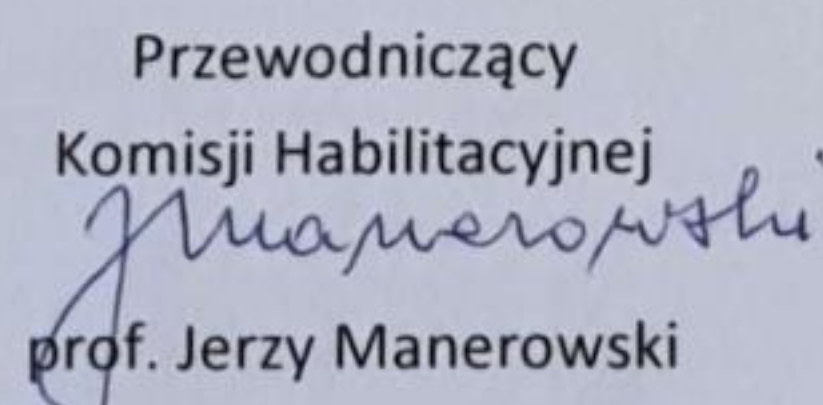 Przewodniczący
Komisji Habilitacyjnej
JManerowski
prof. Jerzy Manerowski